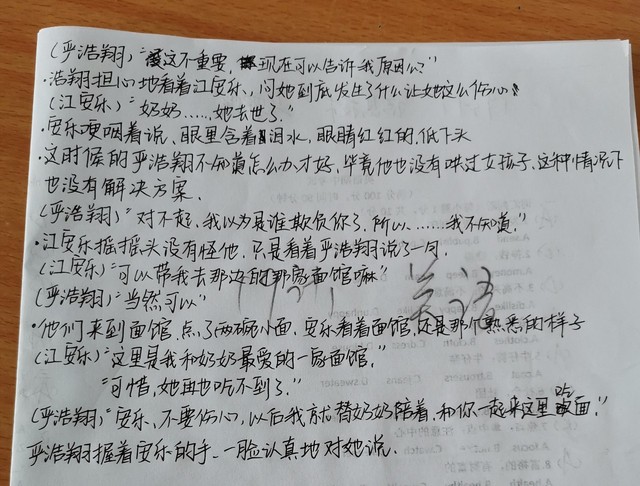 (严浩翔)“这不重要,现在可以告诉我原因么?”
·浩翔担心地看着江安乐,问她到底发生了什么让她这么伤心
(江安乐)“奶奶……她去世了.”
·安乐哽咽着说、眼里含着泪水,眼睛红红的.低下头
·这时候的严浩翔不知道怎么办才好,毕竟他也没有哄过女孩子.这种情况下
也没有解决方案.
(严浩翔)“对不起、我以为是谁欺负你了.所以……我不知道.”
·江安乐摇摇头没有怪他.只是看着严浩翔说了一句.
(江安乐)“可以带我去那边的那家面馆嘛”
(严浩翔)“当然可以”
英语
·他们来到面馆.点了两碗小面.安乐看着面馆,还是那个熟悉的样子
(江安乐)“这里是我和奶奶最爱的一家面馆.”
“可惜,她再也吃不到了.”
(严浩翔)“安乐、不要伤心,以后我就替奶奶陪着.和你一起来这里吃面.”
严浩翔握着安乐的手.一脸认真地对她说.